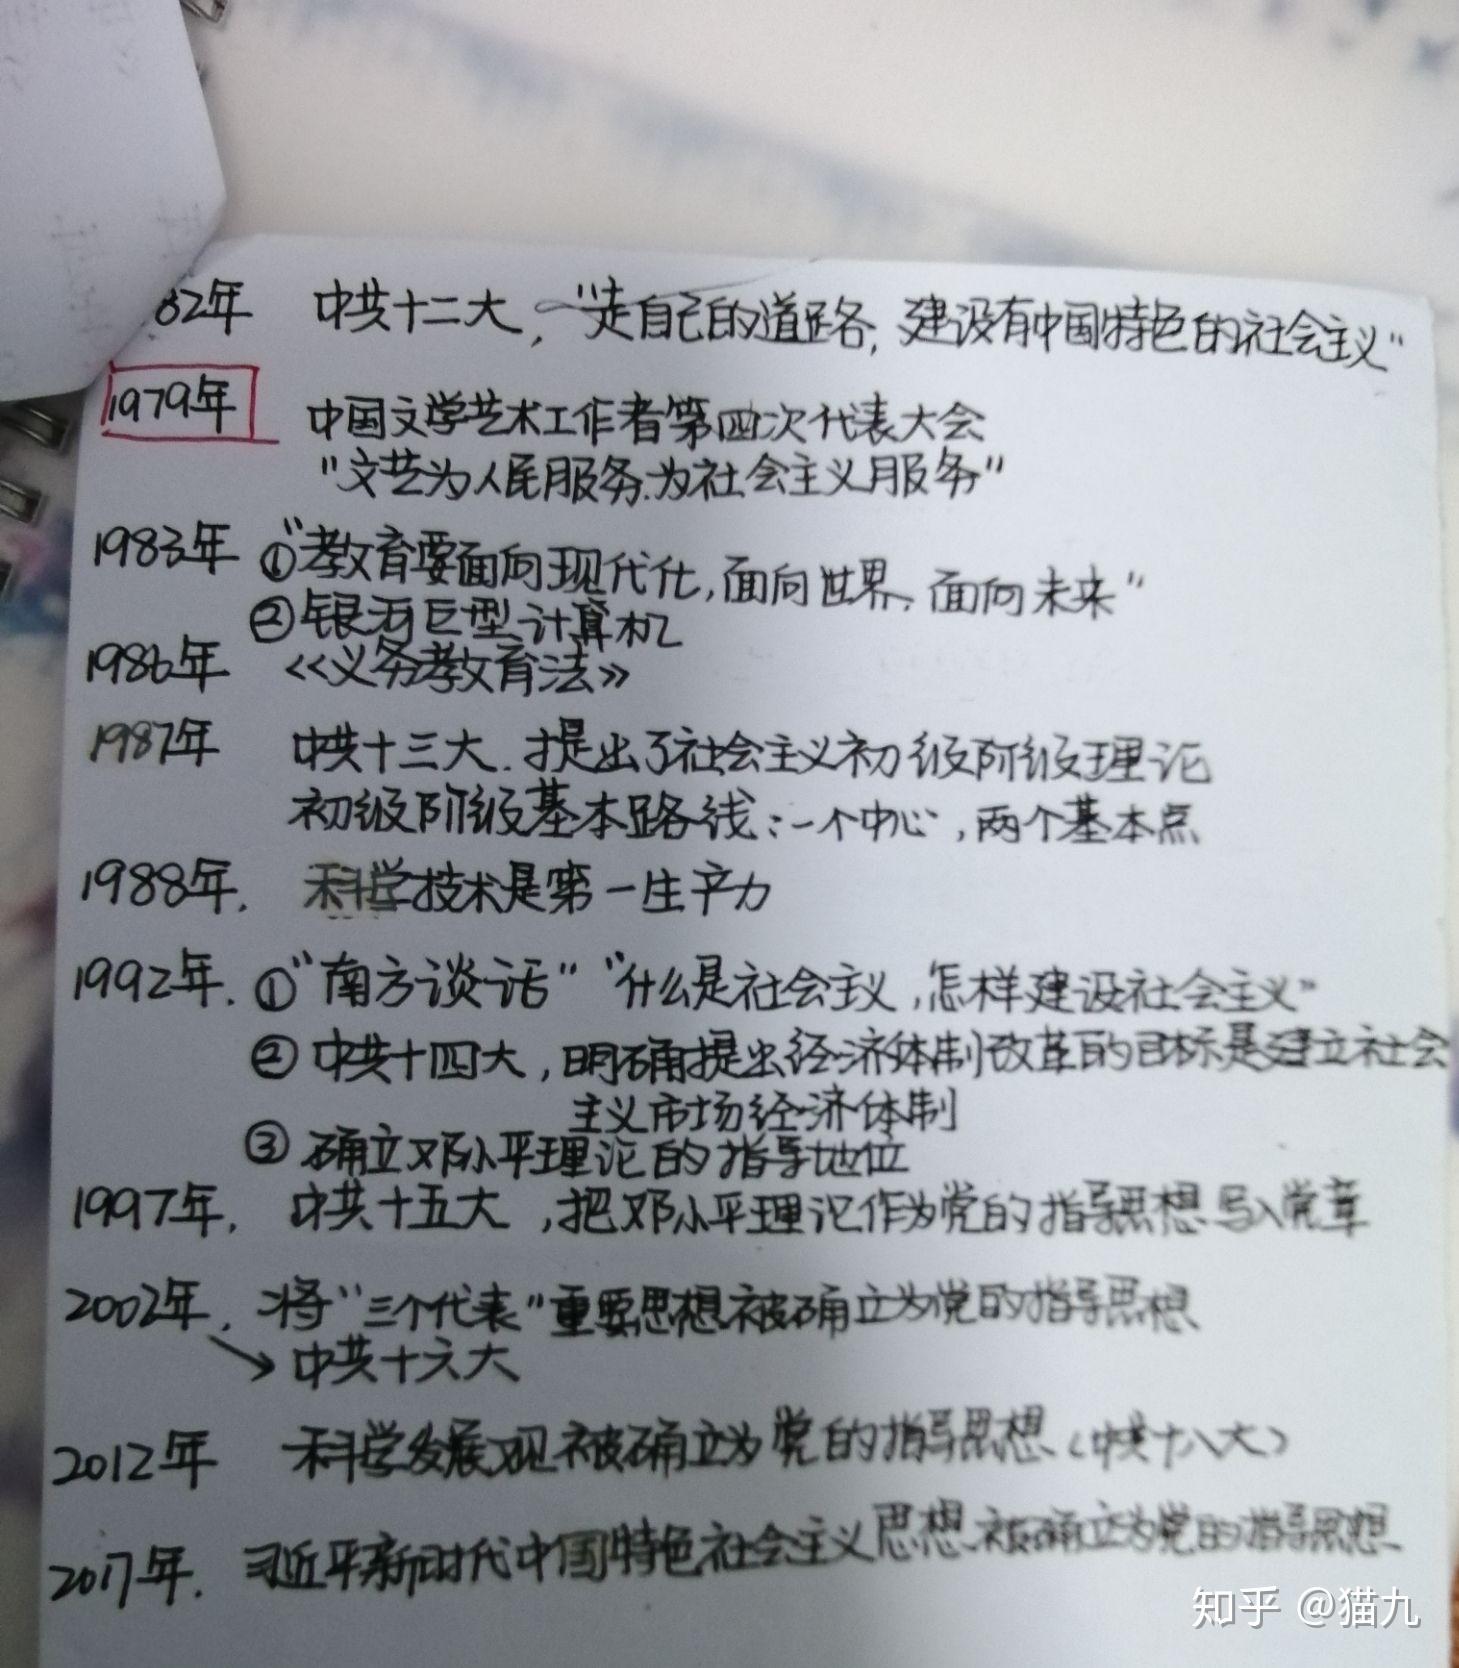 82年 中共十二大，“走自己的道路，建设有中国特色的社会主义”
1979年 中国文学艺术工作者第四次代表大会
“文艺为人民服务.为社会主义服务”
1983年 ①“教育要面向现代化，面向世界，面向未来”
②银河巨型计算机
1986年 《义务教育法》
1987年 中共十三大.提出了社会主义初级阶级理论
初级阶级基本路线：一个中心，两个基本点
1988年. 科学技术是第一生产力
1992年. ①“南方谈话”“什么是社会主义，怎样建设社会主义”
②中共十四大，明确提出经济体制改革的目标是建立社会
主义市场经济体制
③确立邓小平理论的指导地位
1997年. 中共十五大，把邓小平理论作为党的指导思想写入党章
2002年. 将“三个代表”重要思想被确立为党的指导思想
中共十六大
2012年 科学发展观被确立为党的指导思想（中共十八大）
2017年. 习近平新时代中国特色社会主义思想被确立为党的指导思想
知乎 @猫九